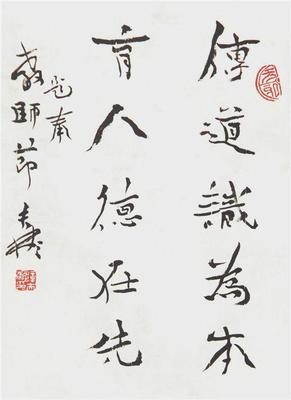 傳道識為本
育人德在先
题奉
教師節